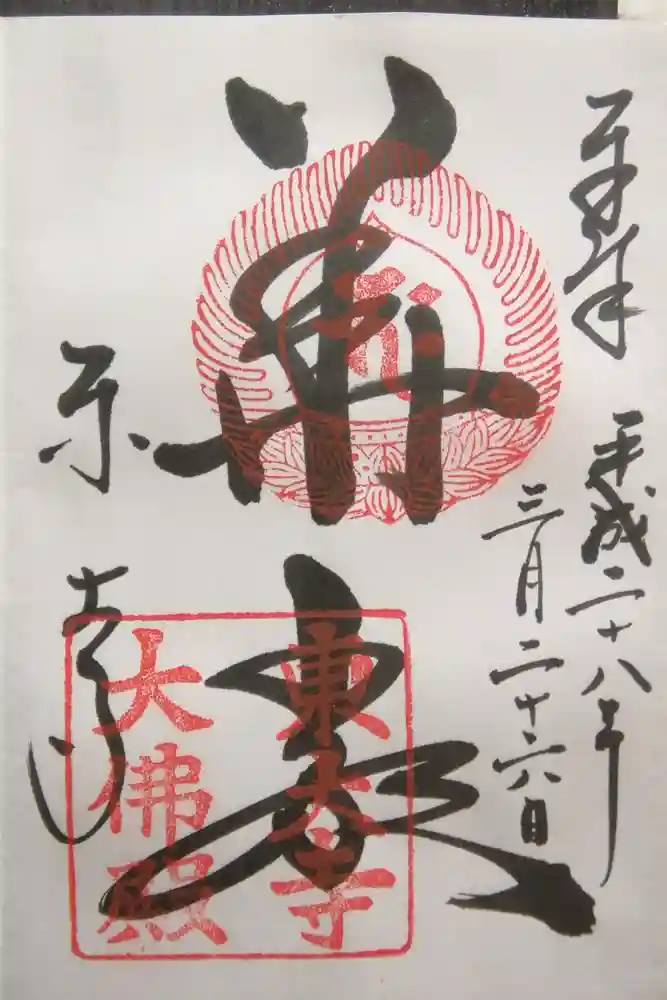 奉拝
平成二十八年
三月二十六日
華厳
東大寺
大佛殿
東大寺